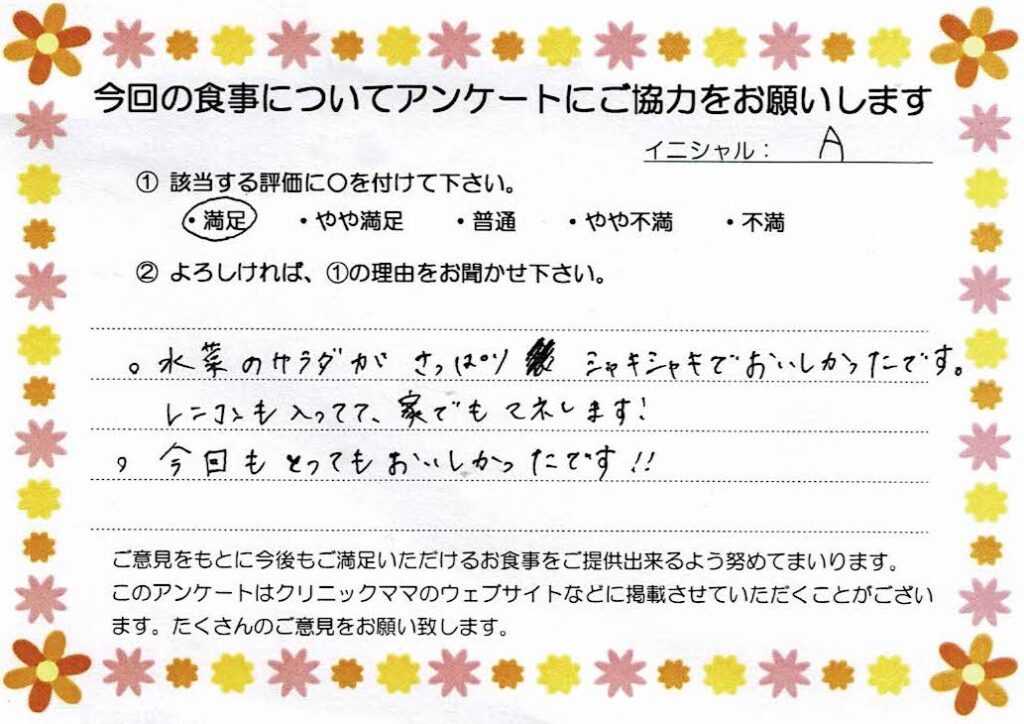 今回の食事についてアンケートにご協力をお願いします
イニシャル： A
① 該当する評価に〇を付けて下さい。
・満足 ・やや満足 ・普通 ・やや不満 ・不満
② よろしければ、①の理由をお聞かせ下さい。
。水菜のサラダが さっぱり シャキシャキでおいしかったです。
レンコンも入ってて、家でもマネします!
。今回もとってもおいしかったです!!
ご意見をもとに今後もご満足いただけるお食事をご提供出来るよう努めてまいります。
このアンケートはクリニックママのウェブサイトなどに掲載させていただくことがござい
ます。たくさんのご意見をお願い致します。